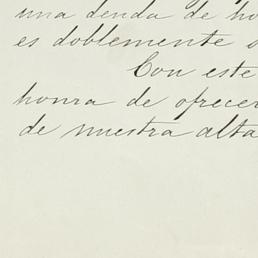 una deuda de ho
es doblemente o
Con este
honra de ofrecer
de nuestra alta